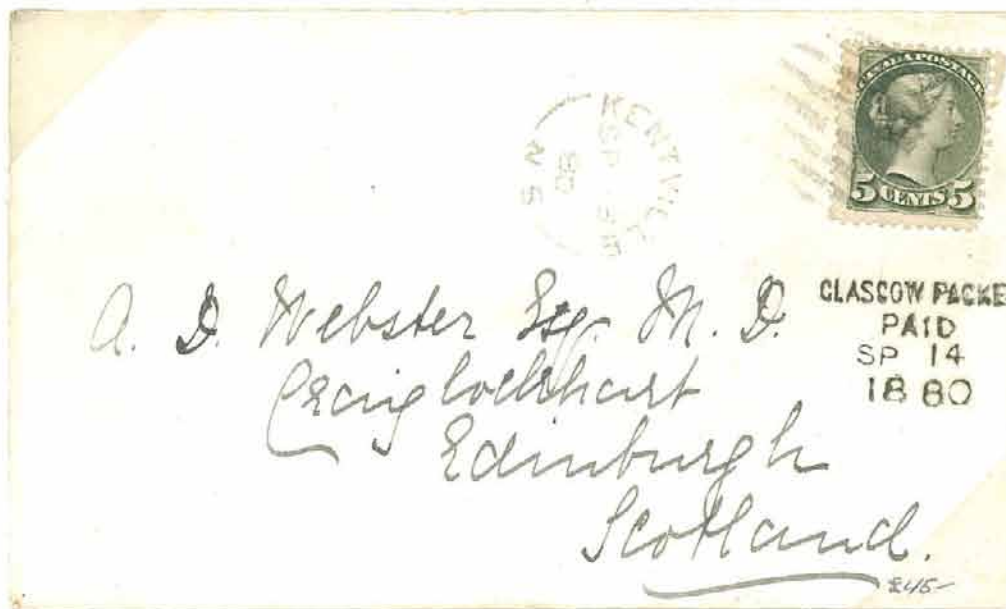 CANADA POSTAGE
5 CENTS 5
KENTVILLE
SP
80
N S
GLASGOW PACKE
PAID
SP 14
1880
A. D. Webster Esq. M. D.
Craiglockhart
Edinburgh
Scotland.
£45-